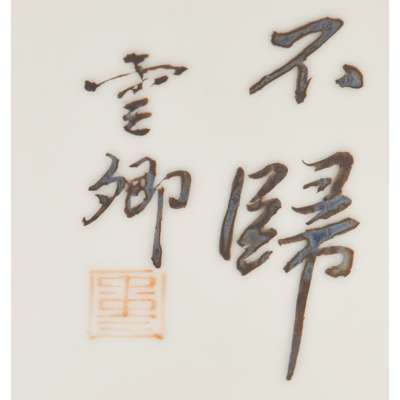 不歸
雲卿